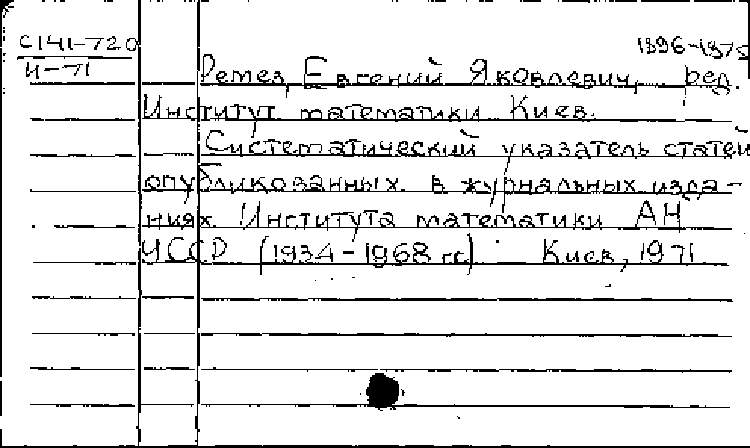 С141-720
И-71
1896-1975
Ремез, Евгений Яковлевич, ред.
Институт математики. Киев.
Систематический указатель статей
опубликованных в журнальных изда-
ниях Института математики АН
УССР (1934-1968 гг.) Киев, 1971